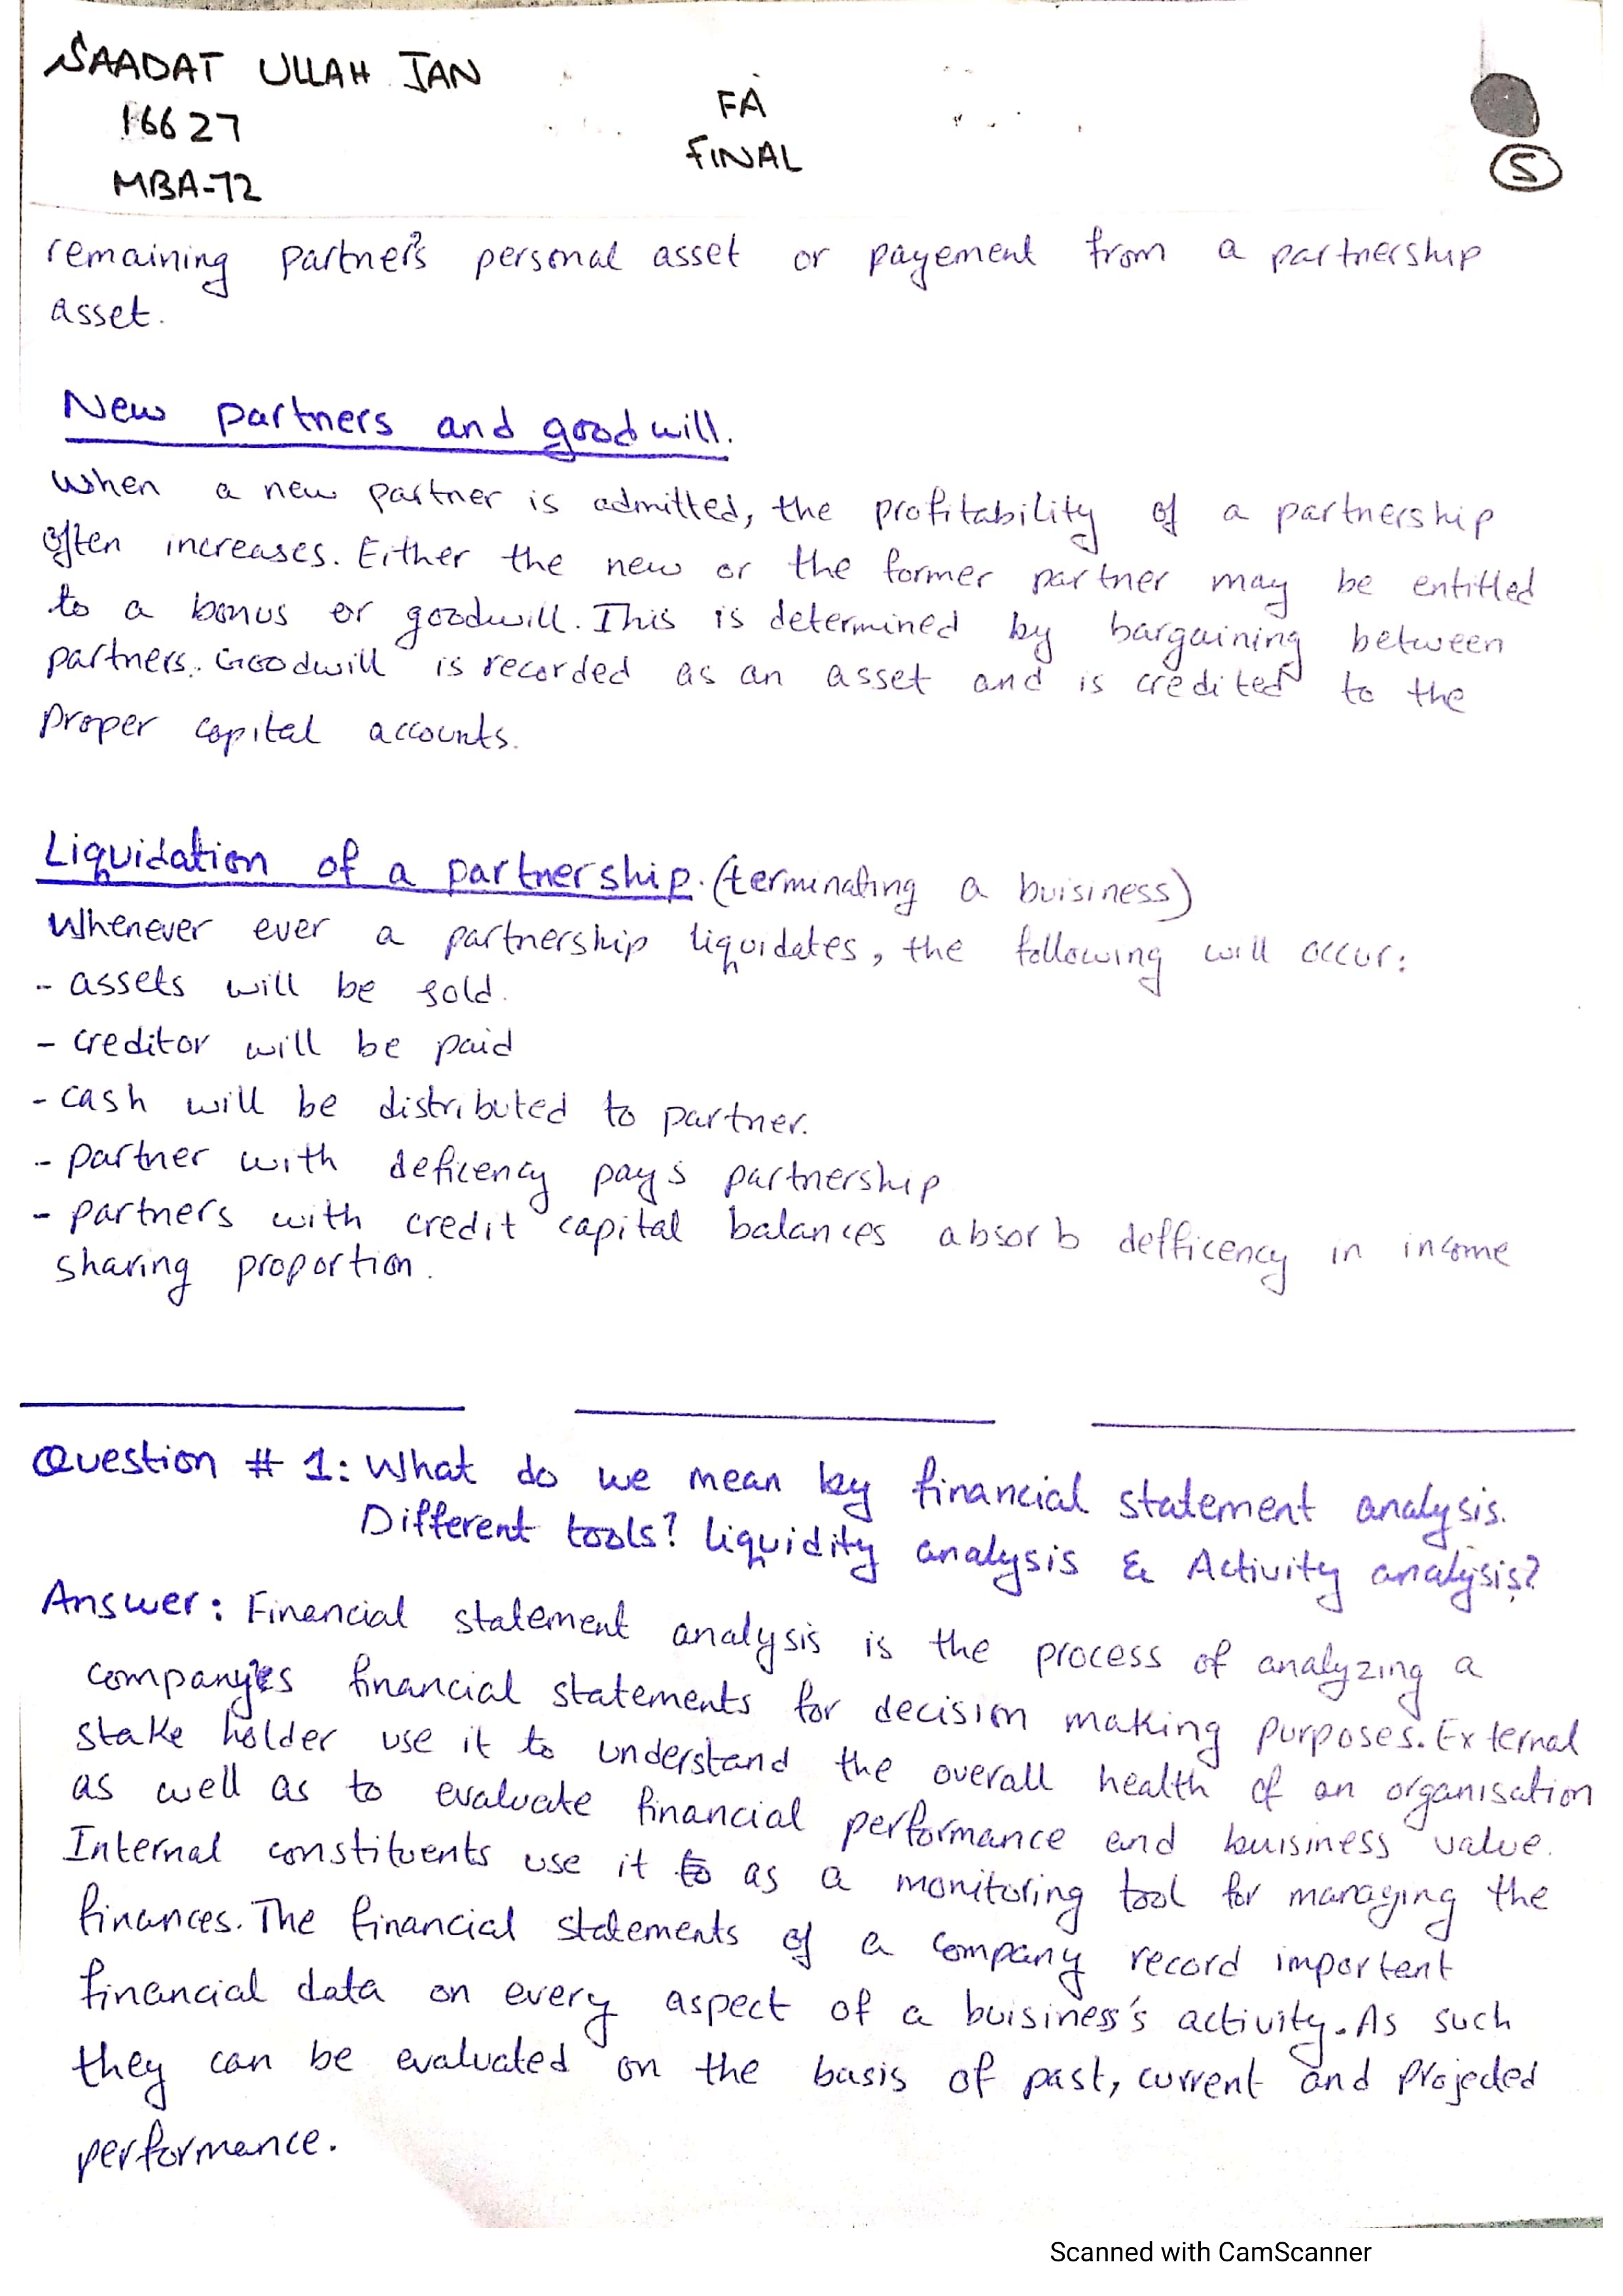 SAADAT ULLAH JAN
16627
MBA-72
FA
FINAL
5
remaining partner's personal asset or payement from a partnership
asset.
New partners and goodwill.
When a new partner is admitted, the profitability of a partnership
often increases. Either the new or the former partner may be entitled
to a bonus or goodwill. This is determined by bargaining between
partners. Goodwill is recorded as an asset and is credited to the
proper capital accounts.
Liquidation of a partnership. (terminating a buisiness)
Whenever ever a partnership liquidates, the following will occur:
- assets will be sold.
- creditor will be paid
- cash will be distributed to partner.
- partner with deficency pays partnership
- partners with credit capital balances absorb defficency in income
sharing proportion.
Question # 1: What do we mean by financial statement analysis.
Different tools? liquidity analysis & Activity analysis?
Answer: Financial statement analysis is the process of analyzing a
company's financial statements for decision making purposes. External
stake holder use it to understand the overall health of an organisation
as well as to evaluate financial performance and buisiness value.
Internal constituents use it to as a monitoring tool for managing the
finances. The financial statements of a company record important
financial data on every aspect of a buisiness's activity. As such
they can be evaluated on the basis of past, current and projected
performance.
Scanned with CamScanner